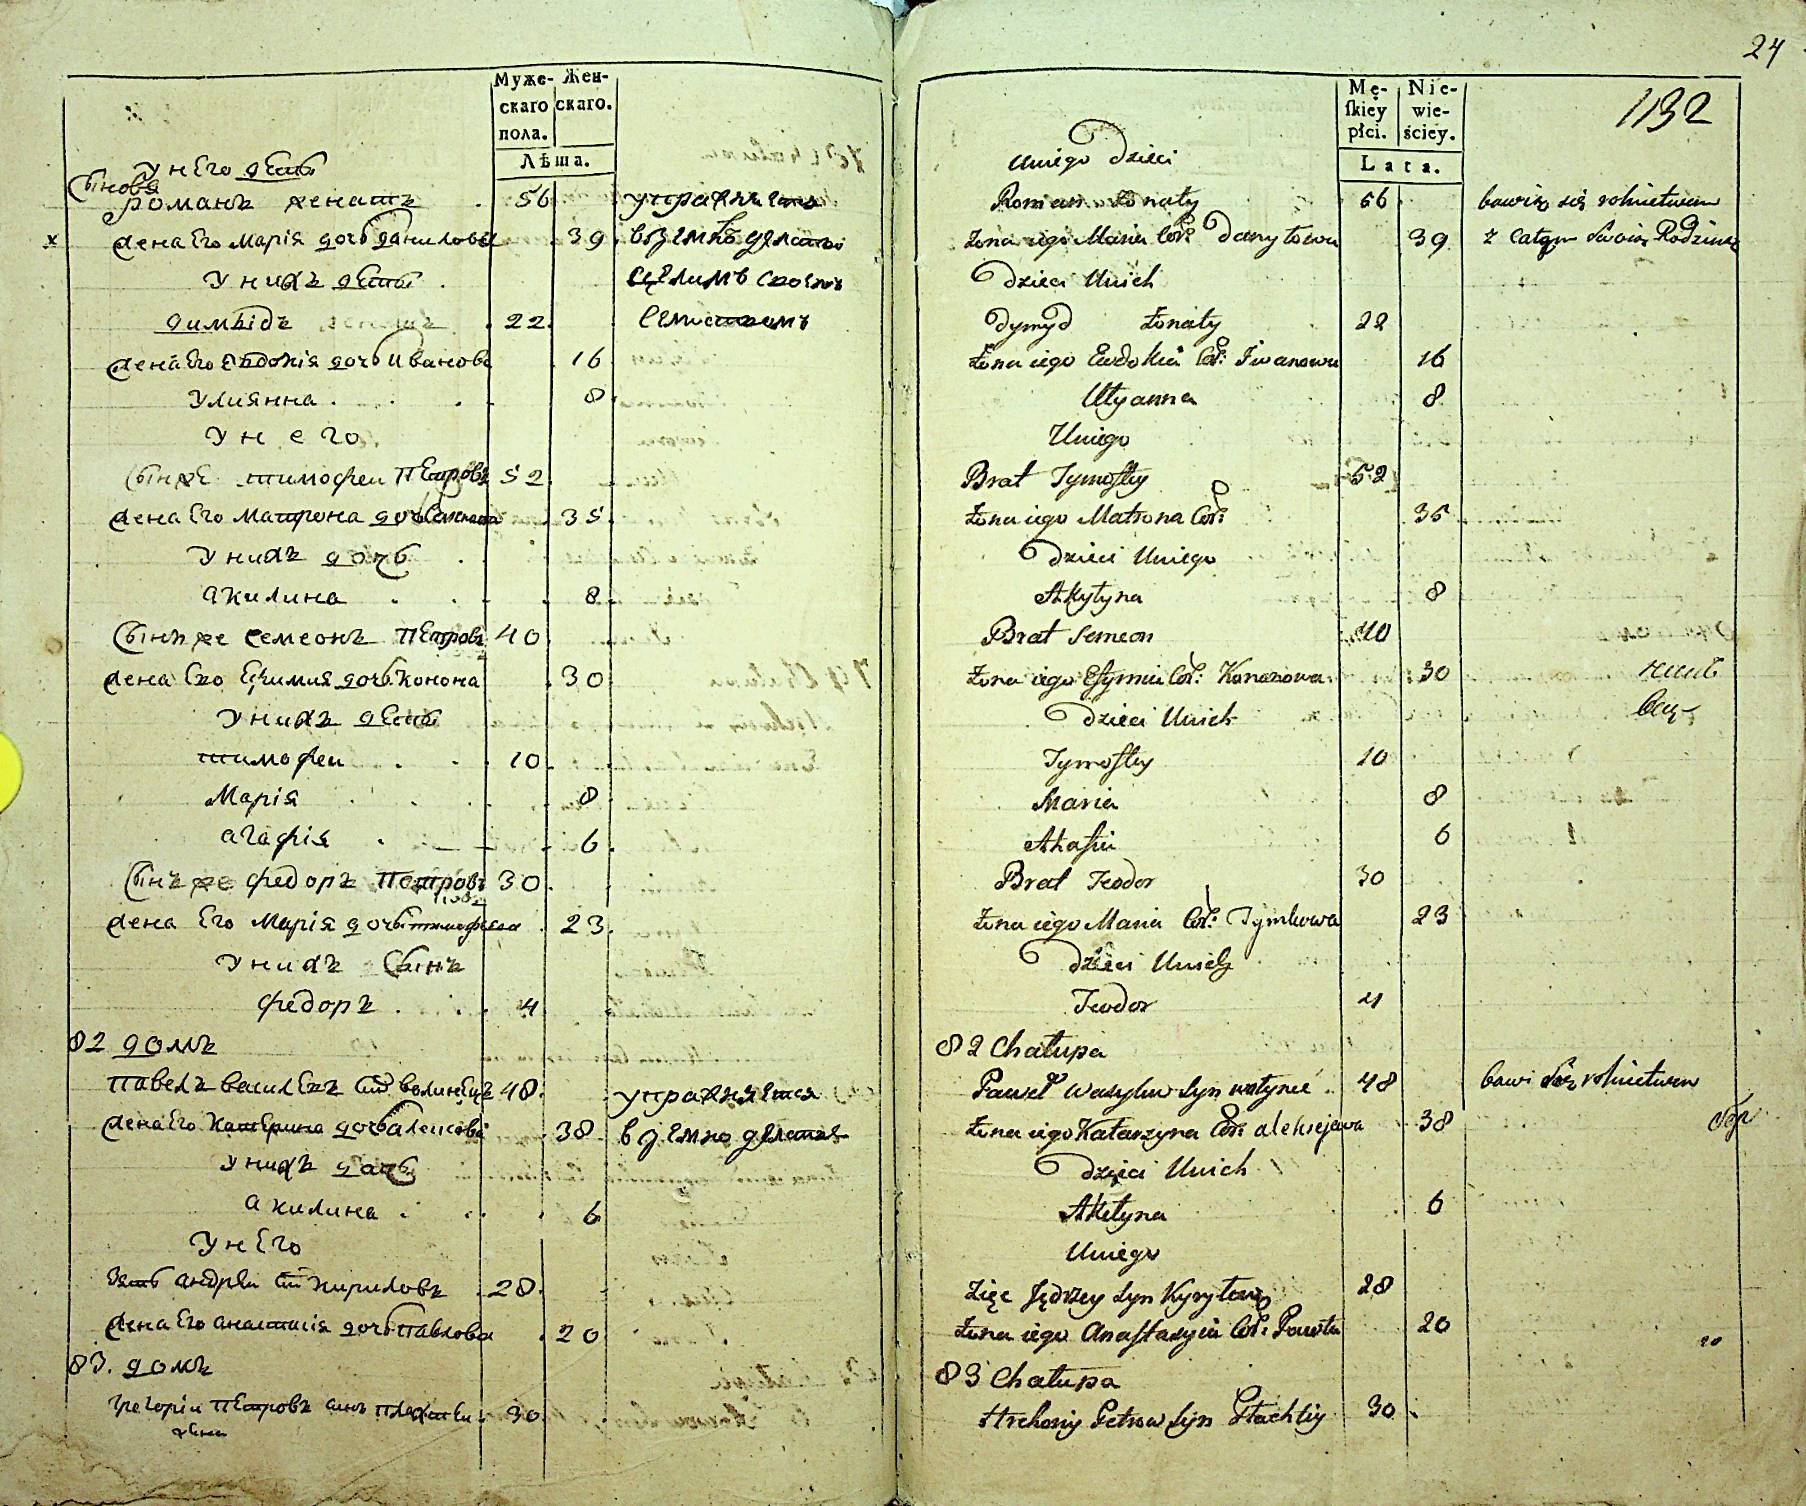 Муже-
скаго
пола.
Жен-
скаго.
Лѣта.
у нЕго дЕти
Сыновя
романъ женатъ 56 упражняетъ
x жена Его марія дочь данилова 39 вземлѣделіи
у нихъ дЕти сцелимъ своимъ
димидъ 22 семиствомъ
жена Его Евдокія дочь иванова 16
улиянна 8
у н е го
Сынже тимофеи пЕтровъ 52
жена Его матрона дочь 35
у нихъ дочь
акилина 8
Сынъ же семеонъ пЕтровъ 40
жена Его Ефимия дочь конона 30
у нихъ дЕти
тимофеи 10
Марія 8
агафія 6
Сынъ же федоръ петровъ 30
жена Его Марія дочь тимофеева 23
у нихъ Сынъ
федоръ 4
82 домъ
павелъ василЕвъ сынъ волинЕцъ 48 упражняется
жена Его катерина дочь алексева 38 вземлѣделіи
у нихъ дочь
акилина 6
у нЕго
зять андрѣи сынъ кириловъ 28
жена Его анастасія дочь павлова 20
83. домъ
григоріи пЕтровъ синъ 30
жена
24
Mę-
ſkiey
płci.
Nie-
wie-
ściey.
Lata.
1132
Uniego Dzieci
Roman Żonaty 56 bawią się rolnictwem
Żona iego Maria Cór: Danyłowa 39 z całą Swoią Rodziną
Dzieci Unich
Dymyd Żonaty 22
Żona iego Ewdokia Cór: Iwanowa 16
Ulyanna 8
Uniego
Brat Tymofiy 52
Żona iego Matrona Cór: 35
Dzieci Uniego
Akylyna 8
Brat Semeon 40
Żona iego Efymia Cór: Kononowa 30
Dzieci Unich
Tymofiy 10
Maria 8
Ahafia 6
Brat Teodor 30
Żona iego Maria Cór: Tymkowa 23
Dzieci Unich
Teodor 4
82 Chałupa
Paweł Wasylow Syn wołyniec 48 bawi Się rolnictwem
Żona iego Katarzyna Cór: alexiejewa 38
Dzieci Unich
Akilyna 6
Uniego
Zięc Jędrzey Syn Kyryłow 28
Żona iego Anastazyia Cór: Pawła 20
83 Chałupa
Hrehoriy Petrow Syn Płachtiy 30